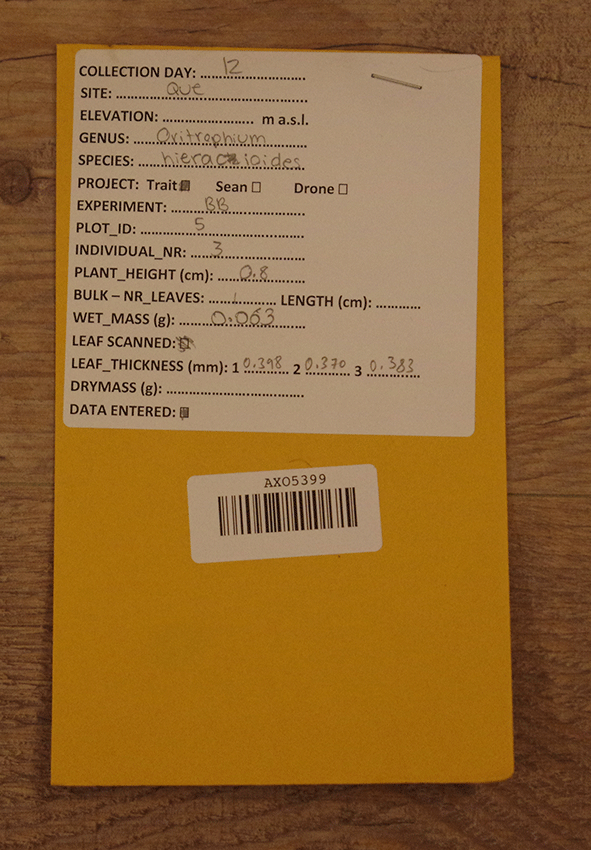 COLLECTION DAY: 12
SITE: QUE
ELEVATION: m a.s.l.
GENUS: Oritrophium
SPECIES: hieracioides
PROJECT: Trait Sean Drone
EXPERIMENT: BB
PLOT_ID: 5
INDIVIDUAL_NR: 3
PLANT_HEIGHT (cm): 0.8
BULK – NR_LEAVES: 1 LENGTH (cm):
WET_MASS (g): 0.063
LEAF SCANNED:
LEAF_THICKNESS (mm): 1 0.398 2 0.370 3 0.383
DRYMASS (g):
DATA ENTERED:
AXO5399